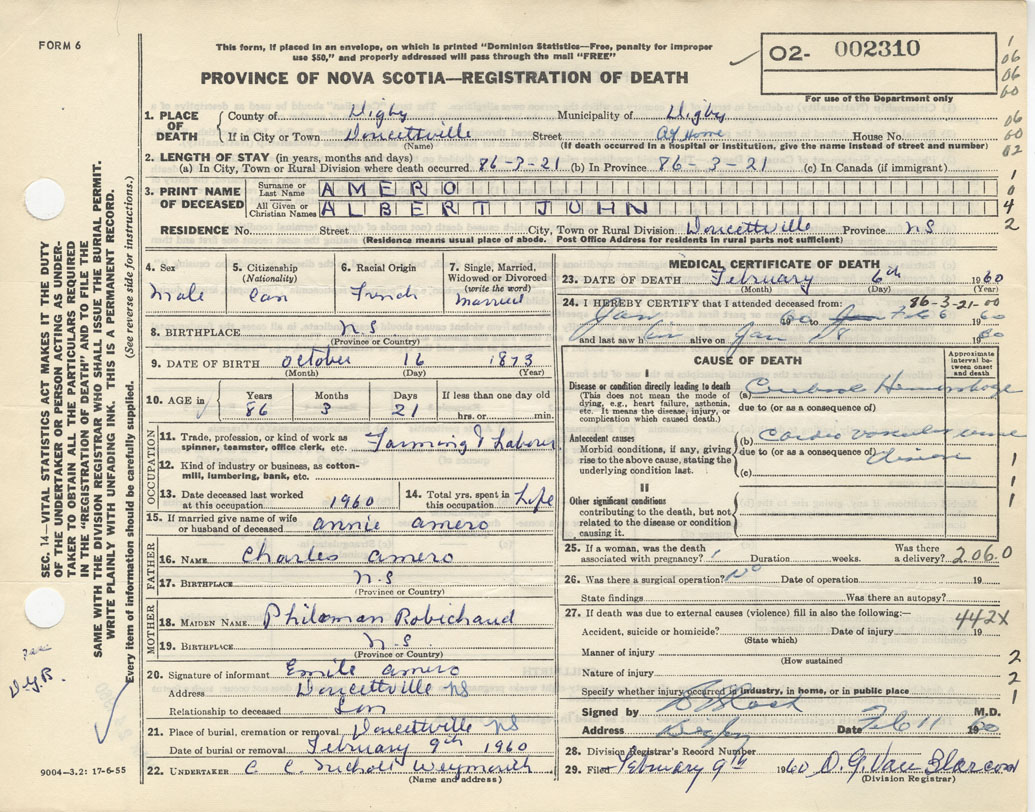 FORM 6
This form, if placed in an envelope, on which is printed "Dominion Statistics—Free, penalty for improper
use $50," and properly addressed will pass through the mail "FREE"
PROVINCE OF NOVA SCOTIA—REGISTRATION OF DEATH
02- 002310
For use of the Department only
1
06
06
60
06
60
02
1
0
4
2
1. PLACE OF DEATH
County of Digby Municipality of Digby
If in City or Town Doucettville Street At Home House No.
(Name) (If death occurred in a hospital or institution, give the name instead of street and number)
2. LENGTH OF STAY (in years, months and days)
(a) In City, Town or Rural Division where death occurred 86-3-21 (b) In Province 86-3-21 (c) In Canada (if immigrant)
3. PRINT NAME OF DECEASED
Surname or Last Name AMERO
All Given or Christian Names ALBERT JOHN
RESIDENCE No. Street City, Town or Rural Division Doucettville Province NS
(Residence means usual place of abode. Post Office Address for residents in rural parts not sufficient)
4. Sex Male
5. Citizenship (Nationality) Can
6. Racial Origin French
7. Single, Married, Widowed or Divorced (write the word) Married
8. BIRTHPLACE N S
(Province or Country)
9. DATE OF BIRTH October 16 1873
(Month) (Day) (Year)
10. AGE in Years 86 Months 3 Days 21 If less than one day old hrs. or min.
OCCUPATION
11. Trade, profession, or kind of work as spinner, teamster, office clerk, etc. Farming & Laborer
12. Kind of industry or business, as cotton-mill, lumbering, bank, etc.
13. Date deceased last worked at this occupation 1960
14. Total yrs. spent in this occupation Life
15. If married give name of wife or husband of deceased Annie Amero
FATHER
16. NAME Charles Amero
17. BIRTHPLACE N.S
(Province or Country)
MOTHER
18. MAIDEN NAME Philoman Robichaud
19. BIRTHPLACE N.S
(Province or Country)
20. Signature of informant Emile Amero
Address Doucettville NS
Relationship to deceased Son
21. Place of burial, cremation or removal Doucettville NS
Date of burial or removal February 9th 1960
22. UNDERTAKER C. C. Nicholl Weymouth
(Name and address)
MEDICAL CERTIFICATE OF DEATH
23. DATE OF DEATH February 6th 1960
(Month) (Day) (Year)
86-3-21-00
24. I HEREBY CERTIFY that I attended deceased from:
Jan 1960 to Feb 6 1960
and last saw h alive on Jan 28 1960
CAUSE OF DEATH
Approximate interval between onset and death
I
Disease or condition directly leading to death
(This does not mean the mode of dying, e.g., heart failure, asthenia, etc. It means the disease, injury, or complication which caused death.)
(a) Cerebral Hemorrhage
due to (or as a consequence of)
Antecedent causes
Morbid conditions, if any, giving rise to the above cause, stating the underlying condition last.
(b) Cardio vascular
due to (or as a consequence of) disease
(c)
II
Other significant conditions
contributing to the death, but not related to the disease or condition causing it.
1
1
1
25. If a woman, was the death associated with pregnancy? Duration weeks. Was there a delivery?
206.0
26. Was there a surgical operation? No Date of operation 19
State findings Was there an autopsy?
27. If death was due to external causes (violence) fill in also the following:—
442X
Accident, suicide or homicide? Date of injury 19
(State which)
Manner of injury
(How sustained
2
Nature of injury
2
Specify whether injury occurred in industry, in home, or in public place
1
Signed by M.D.
Address Digby Date Feb 11 1960
28. Division Registrar's Record Number
29. Filed February 9th 1960 D. G. Van Blarcom
(Division Registrar)
SEC. 14—VITAL STATISTICS ACT MAKES IT THE DUTY
OF THE UNDERTAKER OR PERSON ACTING AS UNDER-
TAKER TO OBTAIN ALL THE PARTICULARS REQUIRED
IN THE "REGISTRATION OF DEATH" AND TO FILE THE
SAME WITH THE DIVISION REGISTRAR WHO SHALL ISSUE THE BURIAL PERMIT.
WRITE PLAINLY WITH UNFADING INK. THIS IS A PERMANENT RECORD.
Every item of information should be carefully supplied. (See reverse side for instructions.)
9004-3.2: 17-6-55